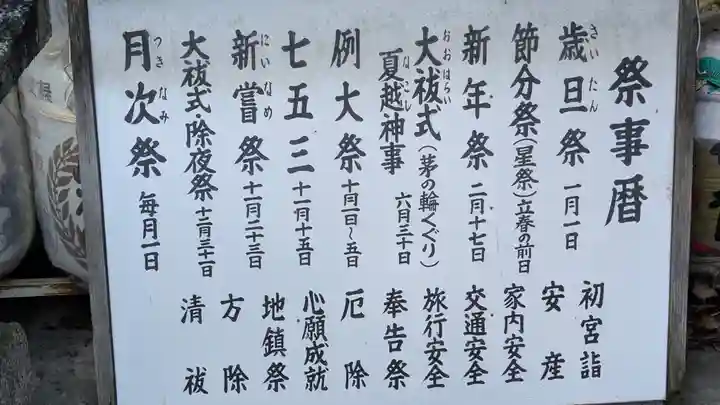 祭事暦
歳旦祭 一月一日
さいたん
節分祭(星祭)立春の前日
新年祭 二月十七日
大祓式(茅の輪くぐり)
おおはらい
夏越神事 六月三十日
なごし
例大祭 十月一日~五日
七五三 十一月十五日
新嘗祭 十一月二十三日
にいなめ
大祓式・除夜祭 十二月三十一日
月次祭 毎月一日
つきなみ
初宮詣
安産
家内安全
交通安全
旅行安全
奉告祭
厄除
心願成就
地鎮祭
方除
清祓